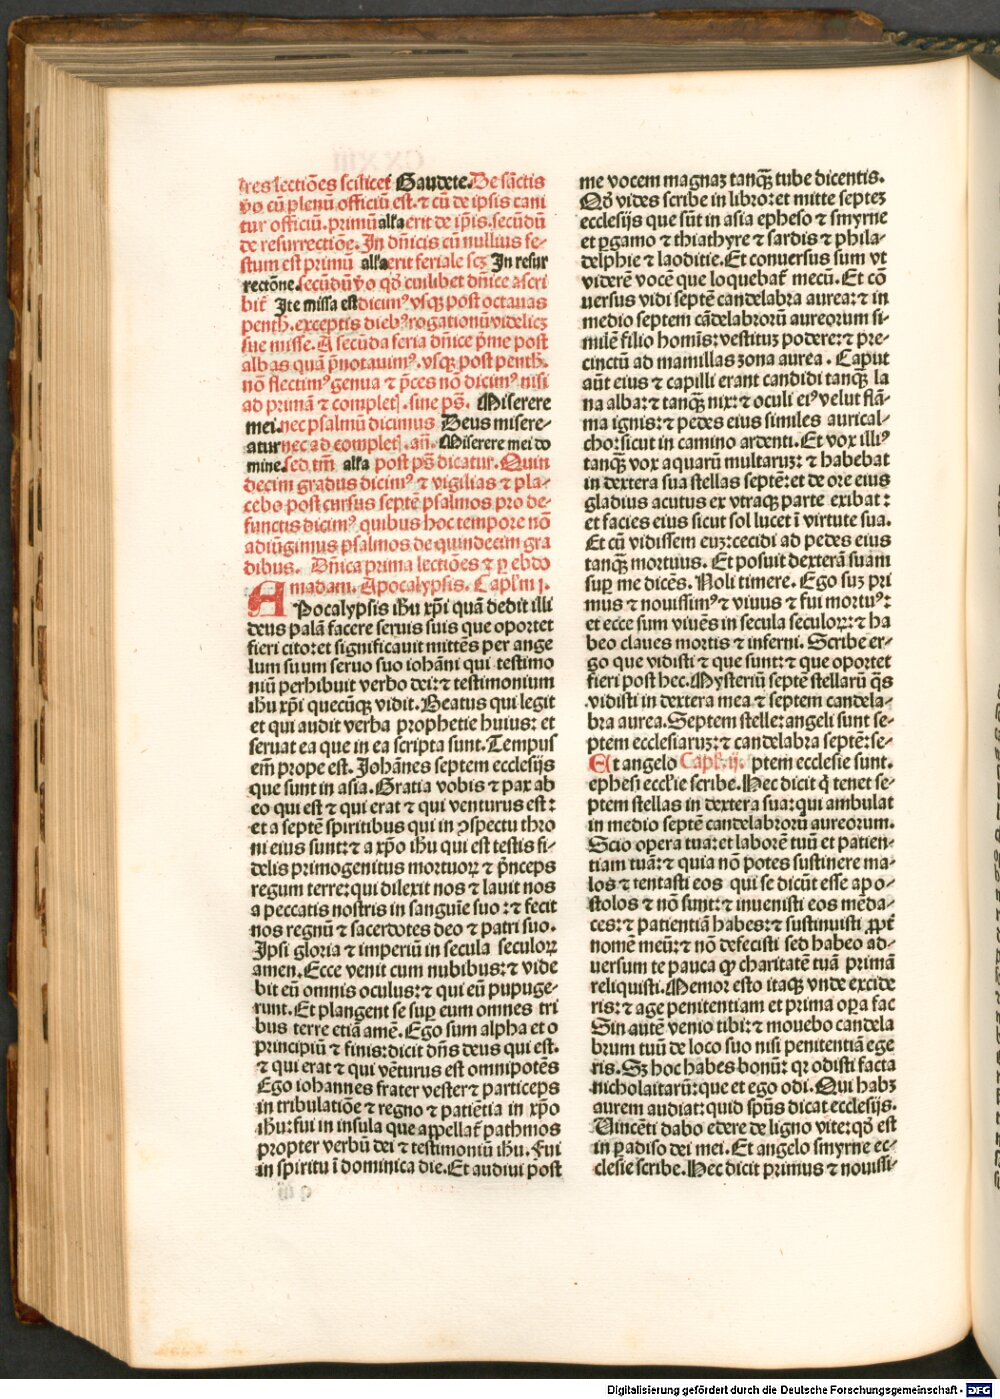 tres lectiões scilicet Gaudete. De sãctis
ṽo cũ plenũ officiũ est. ⁊ cũ de ipsis cani
tur officiũ. primũ alľa erit de ip̃is. secũdũ
de resurrectiõe. In dñicis cũ nullius fe-
stum est primũ alľa erit feriale scꝫ In resur
rectõne. secũdũ ṽo qḋ cuilibet dñice ascri
bit᷑ Ite missa est dicimꝰ vsqꝫ post octauas
penth̃. exceptis diebꝰ rogationũ videlicꝫ
sue misse. A secũda feria dñice p̃me post
albas quã p̃notauimꝰ. vsqꝫ post penth̃.
nõ flectimꝰ genua ⁊ p̃ces nõ dicimꝰ nisi
ad primã ⁊ completꝭ. sine ps̃. Miserere
mei. nec psalmũ dicimus Deus misere-
atur nec ad completꝭ. añ. Miserere mei do
mine. sed tm̃ alľa post ps̃ dicatur. Quin
decim gradus dicimꝰ ⁊ vigilias ⁊ pla-
cebo post cursus septẽ psalmos pro de-
functis dicimꝰ quibus hoc tempore nõ
adiũgimus psalmos de quindecim gra
dibus. Dñica prima lectiões ⁊ ꝑ ebdo
madam. Apocalypsis. Capľm j.
APocalypsis ih̃u xp̃i quã dedit illi
deus palã facere seruis suis que oportet
fieri cito: et significauit mittẽs per ange
lum suum seruo suo iohãni qui testimo
niũ perhibuit verbo dei: ⁊ testimonium
ih̃u xp̃i quecũqꝫ vidit. Beatus qui legit
et qui audit verba prophetie huius: et
seruat ea que in ea scripta sunt. Tempus
em̃ prope est. Johãnes septem ecclesijs
que sunt in asia. Gratia vobis ⁊ pax ab
eo qui est ⁊ qui erat ⁊ qui venturus est:
et a septẽ spiritibus qui in ꝯspectu thro
ni eius sunt: ⁊ a xp̃o ih̃u qui est testis fi-
delis primogenitus mortuoꝝ ⁊ p̃nceps
regum terre: qui dilexit nos ⁊ lauit nos
a peccatis nostris in sanguĩe suo: ⁊ fecit
nos regnũ ⁊ sacerdotes deo ⁊ patri suo.
Ipsi gloria ⁊ imperiũ in secula seculoꝝ
amen. Ecce venit cum nubibus: ⁊ vide
bit eũ omnis oculus: ⁊ qui eũ pupuge-
runt. Et plangent se suꝑ eum omnes tri
bus terre etiã amẽ. Ego sum alpha et o
principiũ ⁊ finis: dicit dñs deus qui est.
⁊ qui erat ⁊ qui vẽturus est omnipotẽs
Ego iohannes frater vester ⁊ particeps
in tribulatiõe ⁊ regno ⁊ patiẽtia in xp̃o
ih̃u: fui in insula que appellat᷑ pathmos
propter verbũ dei ⁊ testimoniũ ih̃u. Fui
in spiritu ĩ dominica die. Et audiui post
me vocem magnaꝫ tanqꝫ̃ tube dicentis.
Qḋ vides scribe in libro: et mitte septeꝫ
ecclesijs que sũt in asia epheso ⁊ smyrne
et ꝑgamo ⁊ thiathyre ⁊ sardis ⁊ phila-
delphie ⁊ laoditie. Et conuersus sum vt
viderẽ vocẽ que loquebat᷑ mecũ. Et cõ
uersus vidi septẽ candelabra aurea: ⁊ in
medio septem cãdelabrorũ aureorum si-
milẽ filio homis̃: vestitũ podere: ⁊ pre-
cinctũ ad mamillas zona aurea. Caput
aũt eius ⁊ capilli erant candidi tanqꝫ̃ la
na alba: ⁊ tanqꝫ̃ nix: ⁊ oculi eiꝰ velut flã-
ma ignis: ⁊ pedes eius similes aurical-
cho: sicut in camino ardenti. Et vox illiꝰ
tanqꝫ̃ vox aquarũ multaruꝫ: ⁊ habebat
in dextera sua stellas septẽ: et de ore eius
gladius acutus ex vtraqꝫ parte exibat:
et facies eius sicut sol lucet ĩ virtute sua.
Et cũ vidissem euꝫ: cecidi ad pedes eius
tanqꝫ̃ mortuus. Et posuit dexterã suam
suꝑ me dicẽs. Noli timere. Ego suꝫ pri
mus ⁊ nouissimꝰ ⁊ viuus ⁊ fui mortuꝰ:
et ecce sum viuẽs in secula seculoꝝ: ⁊ ha
beo claues mortis ⁊ inferni. Scribe er-
go que vidisti ⁊ que sunt: ⁊ que oportet
fieri post hec. Mysteriũ septẽ stellarũ q̃s
vidisti in dextera mea ⁊ septem candela-
bra aurea. Septem stelle: angeli sunt se-
ptem ecclesiaruꝫ: ⁊ candelabra septẽ: se-
Et angelo Capľ. ij. ptem ecclesie sunt.
ephesi eccľie scribe. Hec dicit q̇ tenet se-
ptem stellas in dextera sua: qui ambulat
in medio septẽ candelabrorũ aureorum.
Scio opera tua: et laborẽ tuũ et patien-
tiam tuã: ⁊ quia nõ potes sustinere ma-
los ⁊ tentasti eos qui se dicũt esse apo-
stolos ⁊ nõ sunt: ⁊ inuenisti eos mẽda-
ces: ⁊ patientiã habes: ⁊ sustinuisti ꝓpt᷑
nomẽ meũ: ⁊ nõ defecisti sed habeo ad-
uersum te pauca ꝙ charitatẽ tuã primã
reliquisti. Memor esto itaqꝫ vnde excide
ris: ⁊ age penitentiam et prima oꝑa fac
Sin autẽ venio tibi: ⁊ mouebo candela
brum tuũ de loco suo nisi penitentiã ege
ris. Sꝫ hoc habes bonũ: qꝛ odisti facta
nicholaitarũ: que et ego odi. Qui habꝫ
aurem audiat: quid sp̃us dicat ecclesijs.
Uincẽti dabo edere de ligno vite: qḋ est
in ꝑadiso dei mei. Et angelo smyrne ec-
clesie scribe. Hec dicit primus ⁊ nouissi-
Digitalisierung gefördert durch die Deutsche Forschungsgemeinschaft - DFG